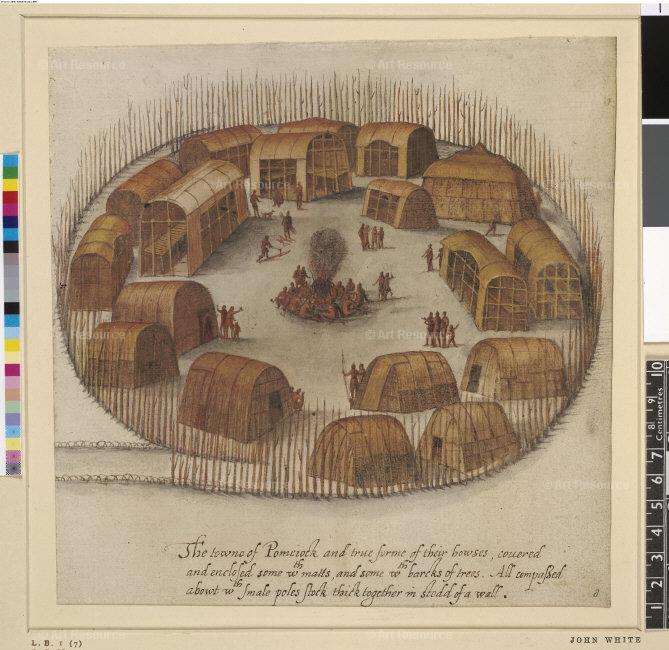 © Art Resource
© Art Resource
© Art Resource
© Art Resource
© Art Resource
© Art Resource
© Art Resource
© Art Resource
The towne of Pomeiock and true forme of their howses, couered
and enclosed some wth matts, and some wth barcks of trees. All compassed
abowt wth smale poles stock thick together in stedd of a wall.
8
1 2 3 4 5 6 7 8 9 10
Centimetres
L. B. 1 (7)
JOHN WHITE